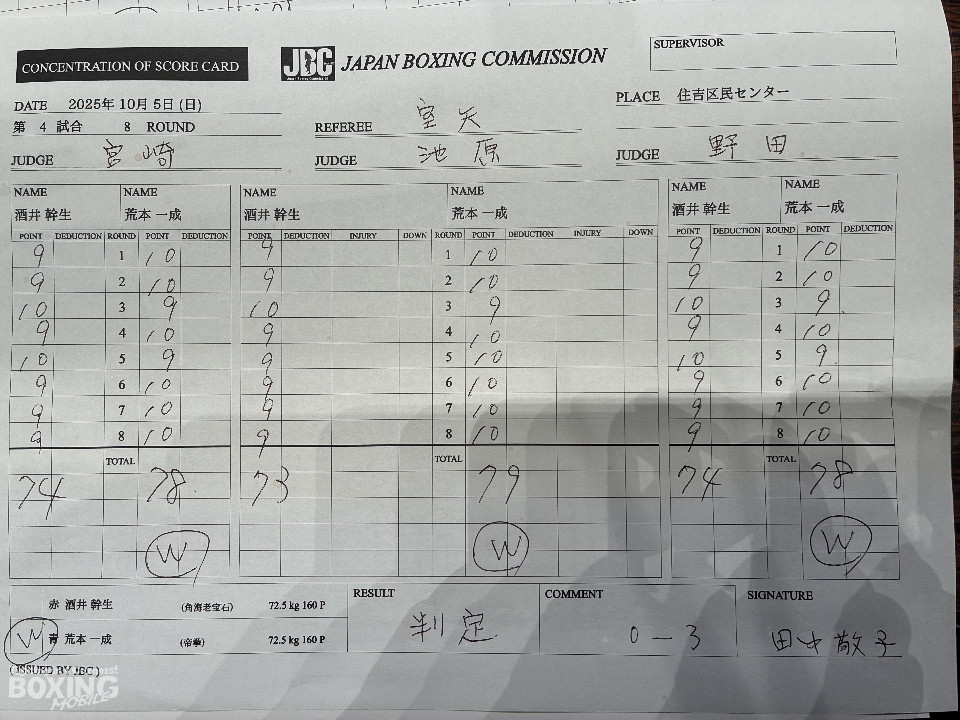 CONCENTRATION OF SCORE CARD
JBC JAPAN BOXING COMMISSION
SUPERVISOR
DATE 2025年 10月 5日 (日)
PLACE 住吉区民センター
第 4 試合 8 ROUND
REFEREE 室矢
JUDGE 宮崎
JUDGE 池原
JUDGE 野田
NAME NAME NAME NAME NAME NAME
酒井 幹生 荒本 一成 酒井 幹生 荒本 一成 酒井 幹生 荒本 一成
POINT DEDUCTION ROUND POINT DEDUCTION POINT DEDUCTION INJURY DOWN ROUND POINT DEDUCTION INJURY DOWN POINT DEDUCTION ROUND POINT DEDUCTION
9 1 10 9 1 10 9 1 10
9 2 10 9 2 10 9 2 10
10 3 9 10 3 9 10 3 9
9 4 10 9 4 10 9 4 10
10 5 9 9 5 10 10 5 9
9 6 10 9 6 10 9 6 10
9 7 10 9 7 10 9 7 10
9 8 10 9 8 10 9 8 10
TOTAL TOTAL TOTAL
74 78 73 79 74 78
W W W
赤 酒井 幹生 (角海老宝石) 72.5 kg 160 P
W 青 荒本 一成 (帝拳) 72.5 kg 160 P
RESULT
判定
COMMENT
0-3
SIGNATURE
田中敬子
( ISSUED BY JBC )
BOXING
MOBILE